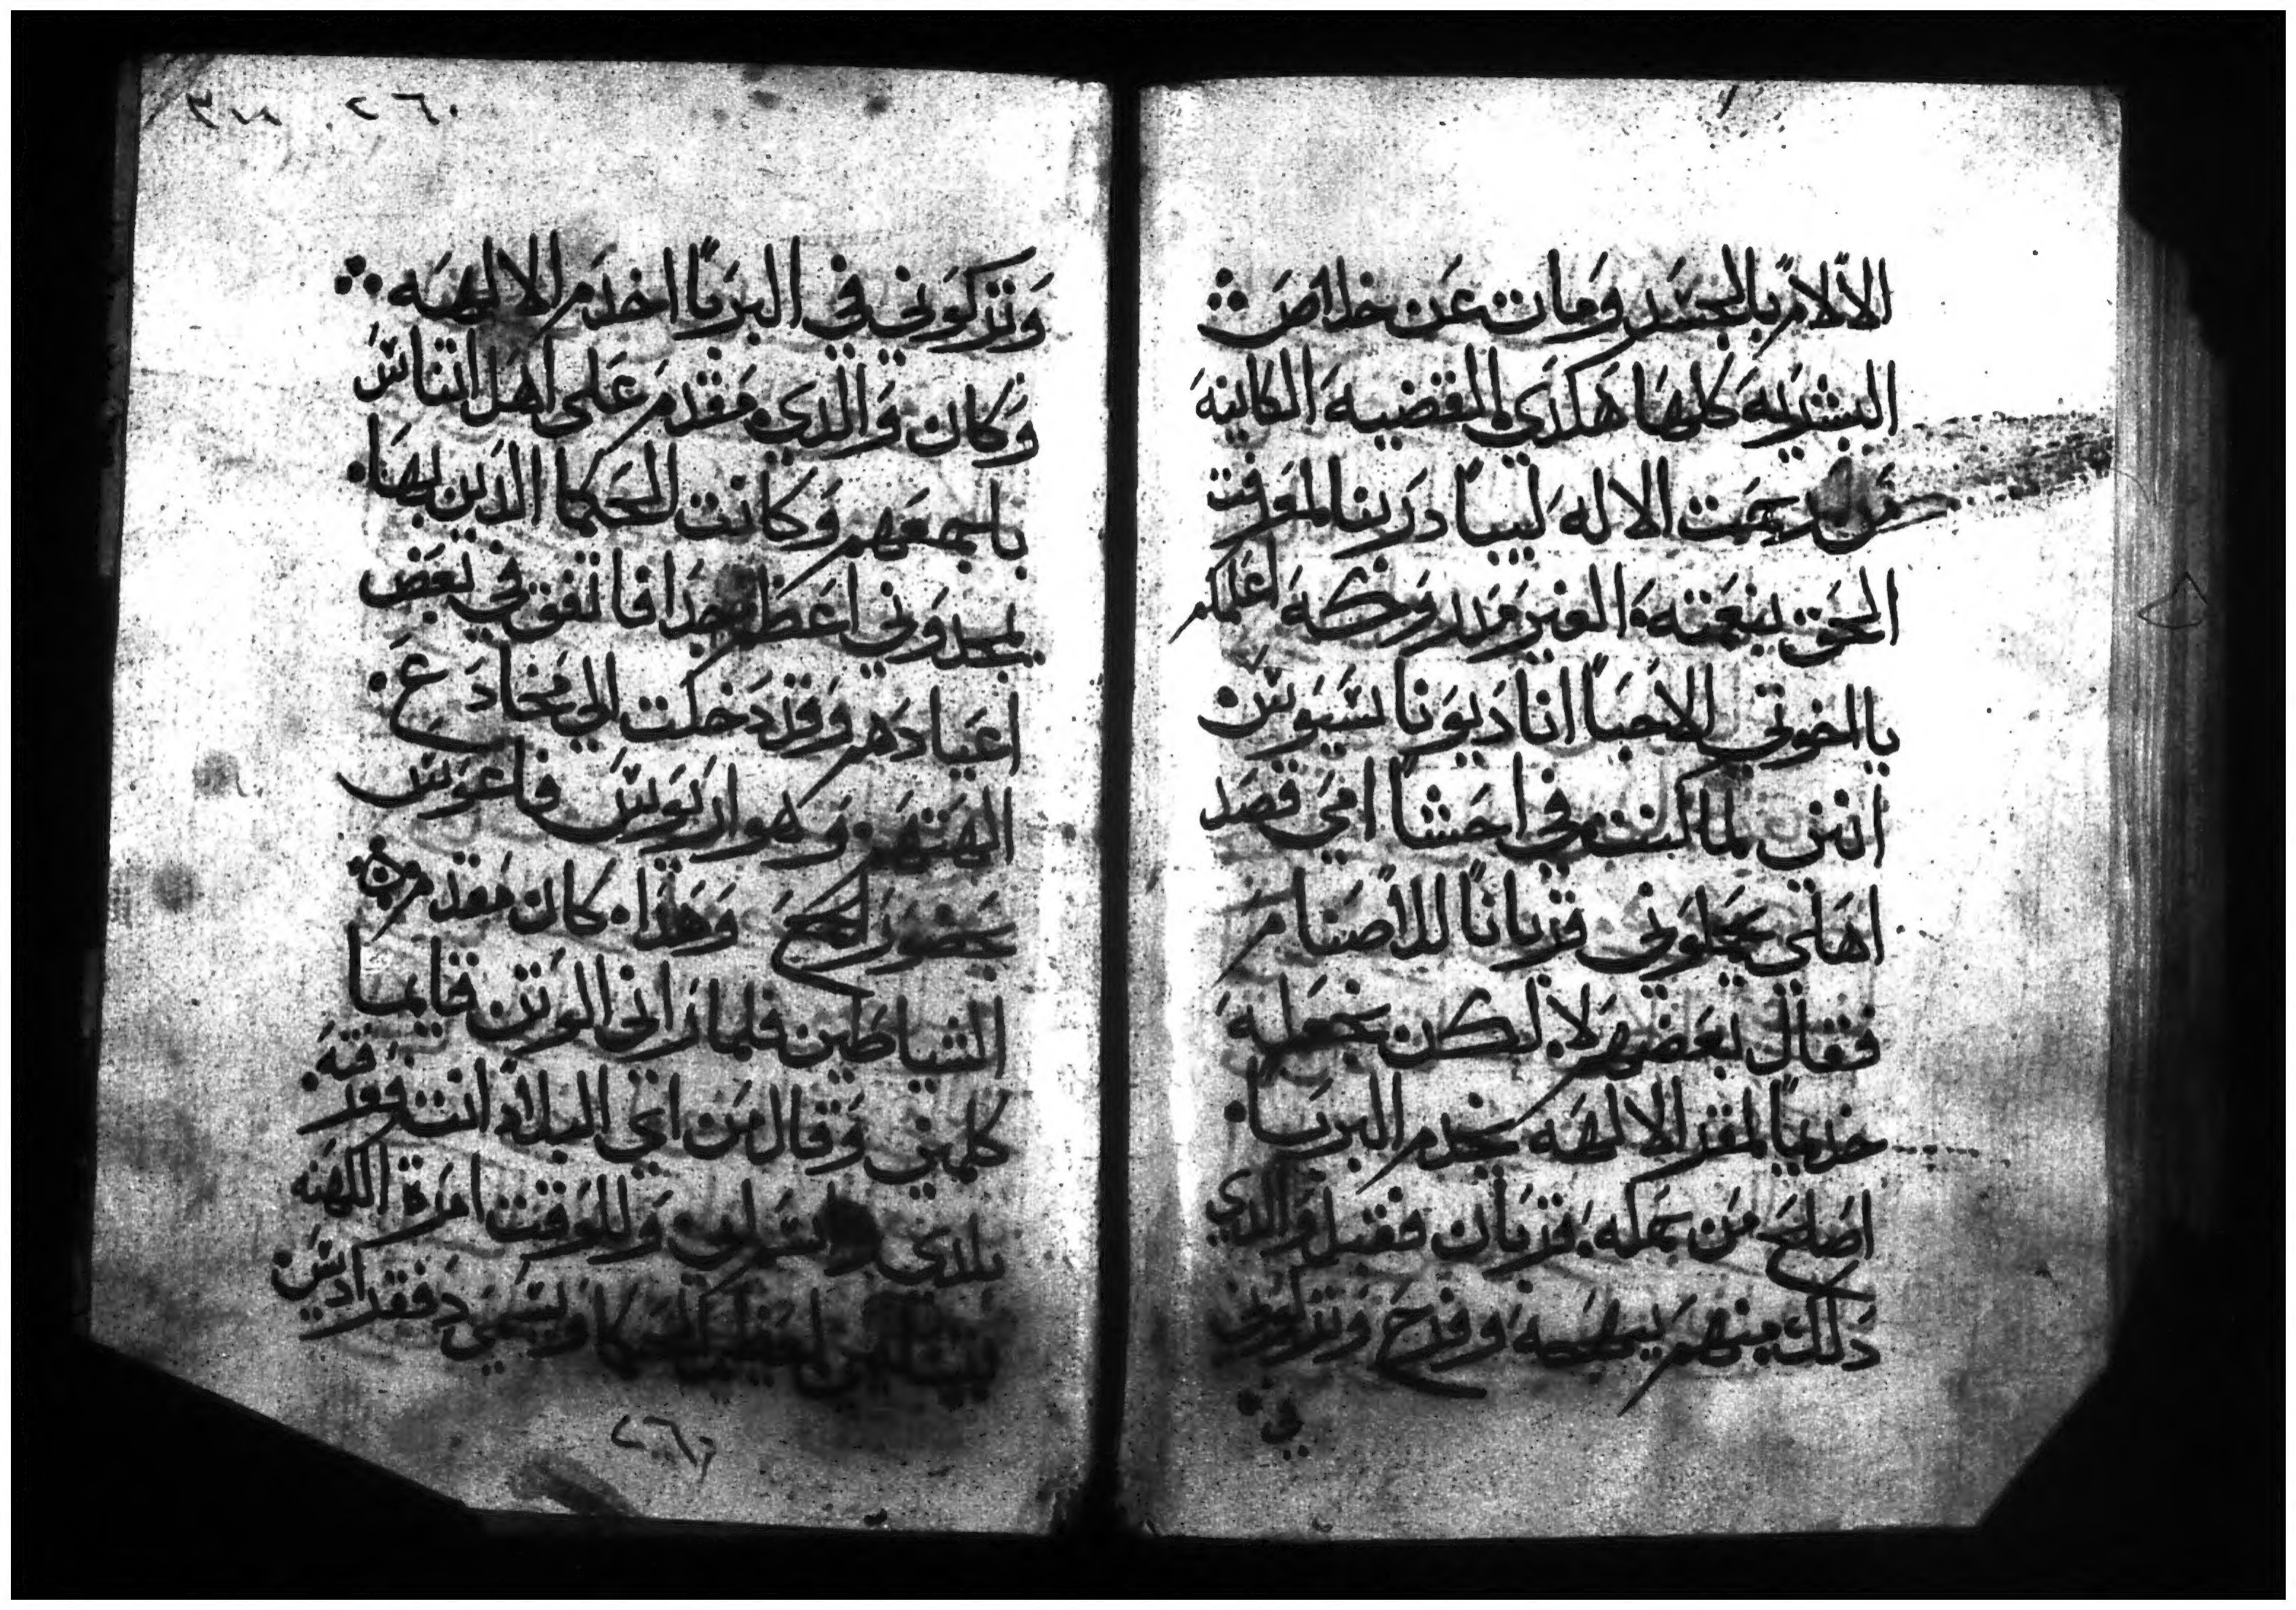 الالام بالجسد ومات عن خلاص
البشريه كلها هكذي القضيه الكاينه
من رحمت الاله ليبادر بنا لمعرفت
الحق بنعمته الغير مدروكه اعلمكم
يا اخوتي الاحبا انا ديوناسيوس
انني لما كنت في احشا امي قصد
اهلي يجعلوني قربانا للاصنام
فقال بعضهم لا لكن نجعله
خديما لمقر الالهه يخدم البربا
اصلح من جمله قربان فقبل والدي
ذلك منهم بطيبه وفرح وتركوني
في
٢٦٠ ٣٧٨
وتركوني في البربا اخدم الالهه
وكان والدي مقدم علي اهل اتناس
باجمعهم وكانت الحكما الذين بها
يمجدوني اعظم جدا فاتفق في بعض
اعيادهم وقد دخلت الي مخادع
الهتهم وهو اريوس فاغوس
بحضور الجمع وهذا كان مقدم
الشياطين فلما راني الوثن قايما
كلمني وقال من اي البلاد انت فعرفته
بلدي واسم ابي وللوقت امرة الكهنه
ويسمي دقفد اديس
٢٦٦